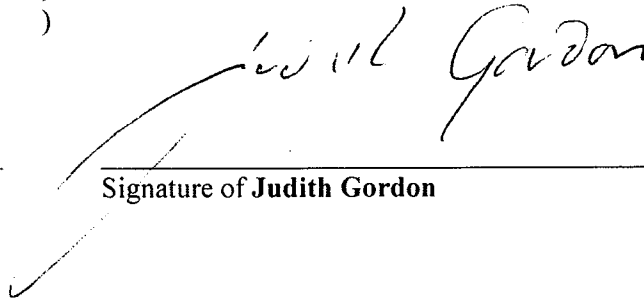 )
Judith Gordon
Signature of Judith Gordon